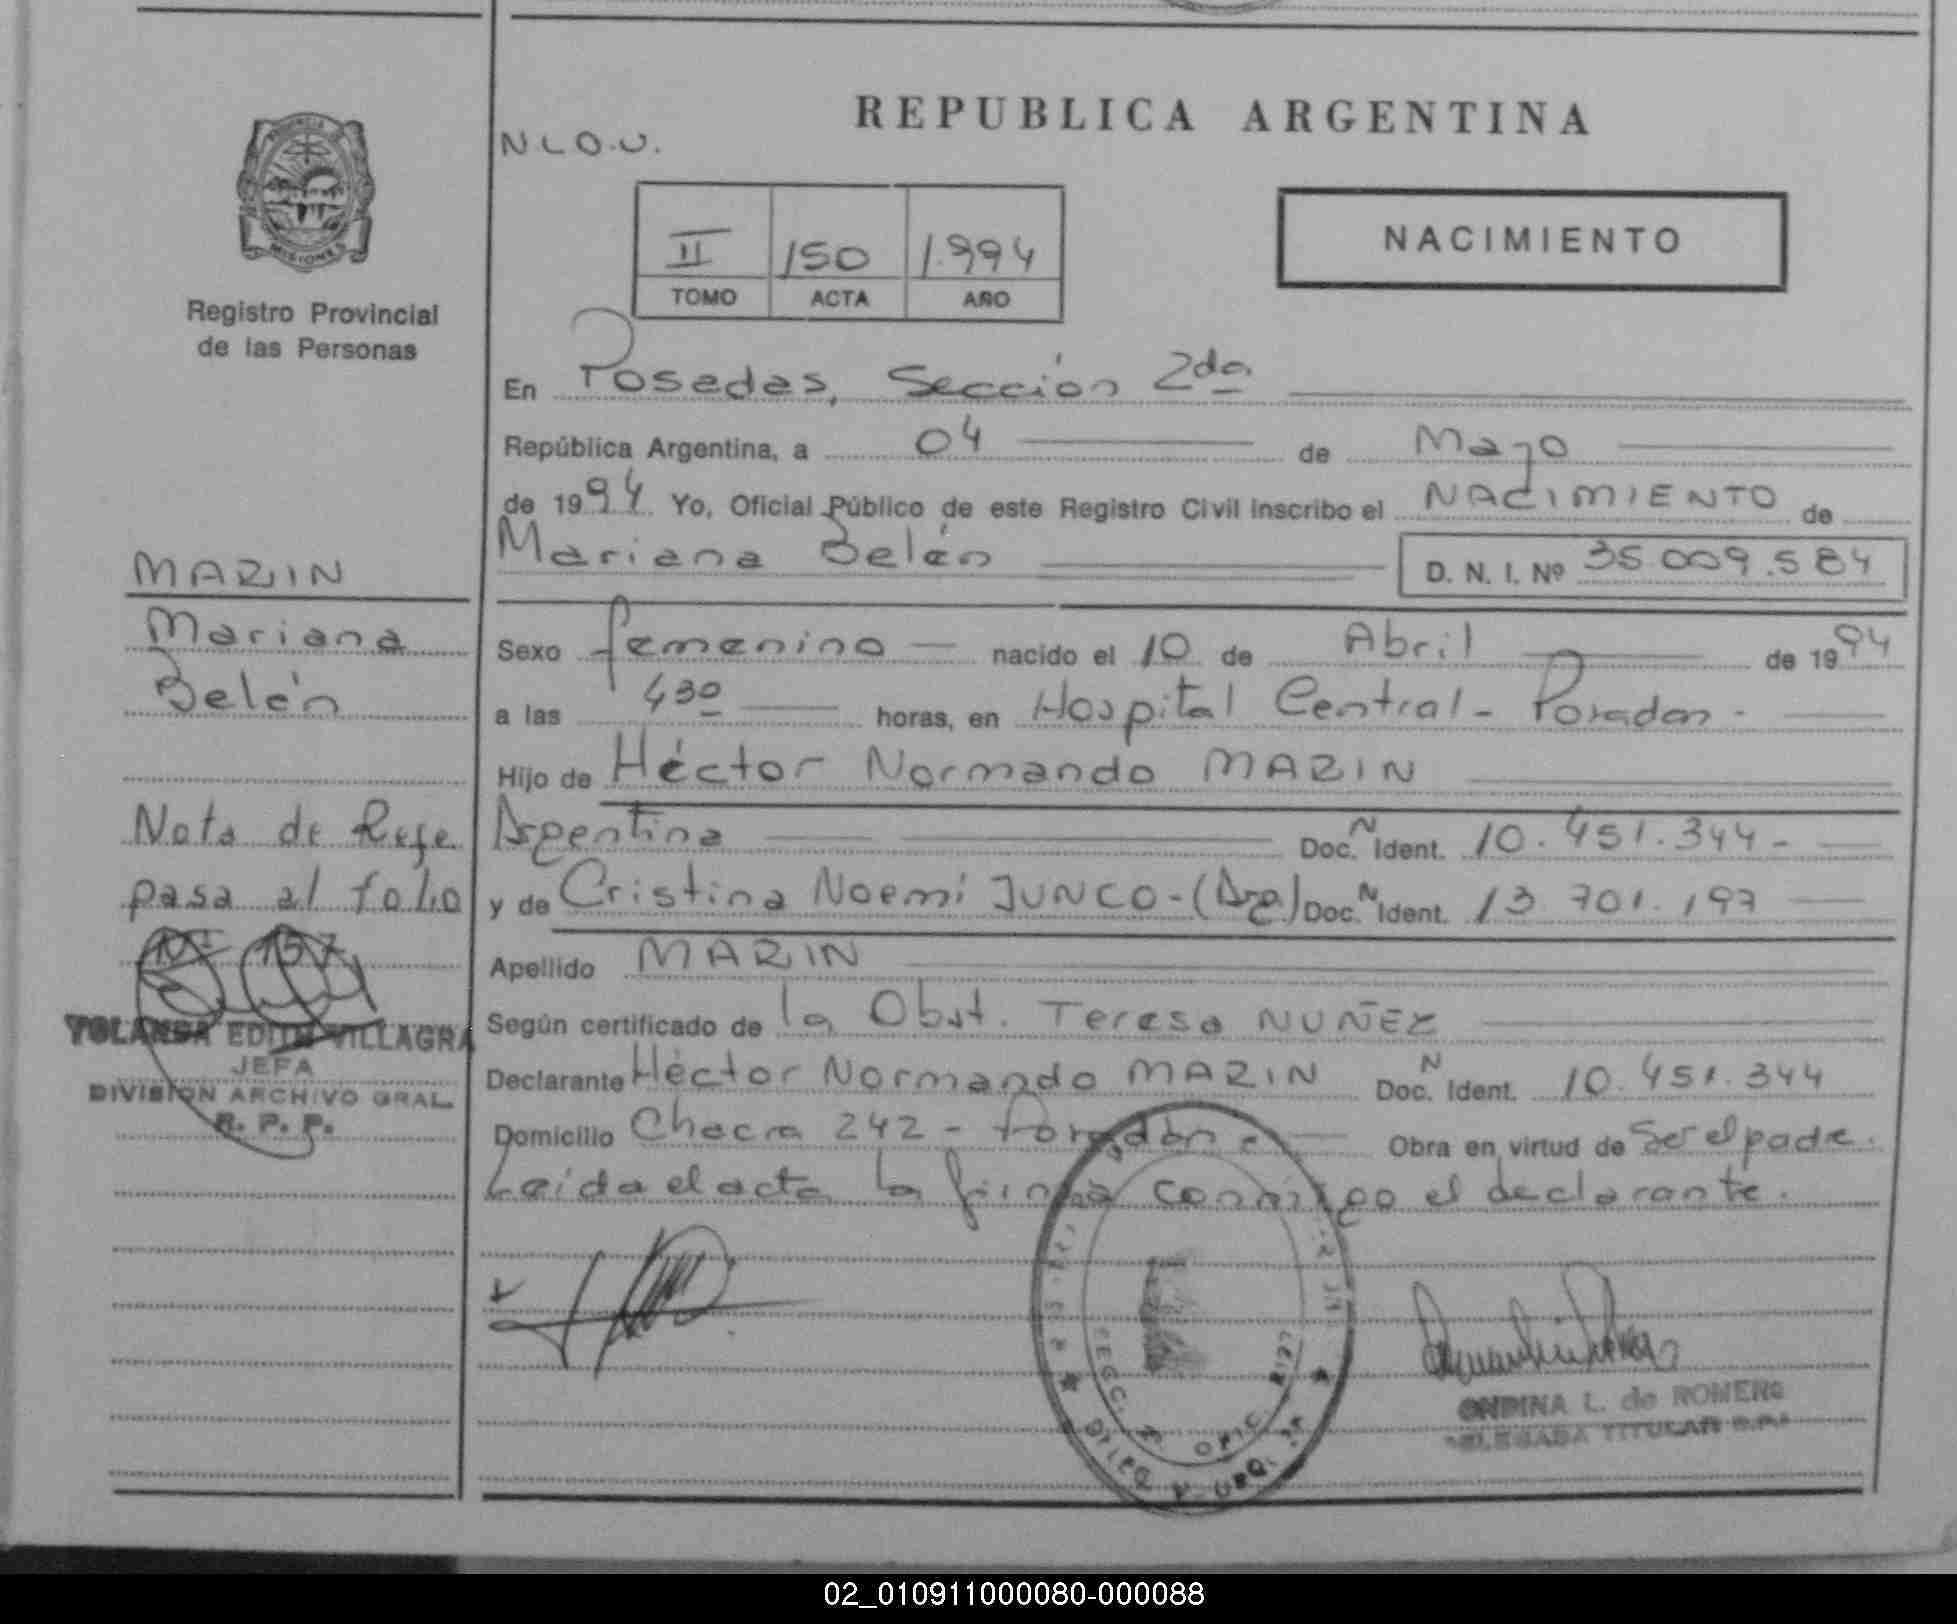 REPUBLICA ARGENTINA
N L O.U.
PROVINCIA DE
MISIONES
Registro Provincial
de las Personas
II 150 1.994
TOMO ACTA AÑO
NACIMIENTO
En Posadas, Sección 2da
República Argentina, a 04 de Mayo
de 1994 Yo, Oficial Público de este Registro Civil inscribo el NACIMIENTO de
Mariana Belén D. N. I. Nº 35.009.584
MARIN
Mariana
Belén
Sexo femenino nacido el 10 de Abril de 1994
a las 430 horas, en Hospital Central - Posadas -
Hijo de Héctor Normando MARIN
Argentina Doc. N Ident. 10.451.344 -
y de Cristina Noemi JUNCO - (Arg.) Doc. N Ident. 13 701.197
Apellido MARIN
Según certificado de la Obst. Teresa NUÑEZ
Declarante Héctor Normando MARIN Doc. N Ident. 10.451.344
Domicilio Chacra 242 - Posadas - Obra en virtud de Ser el padre.
Leída el acta la firma conmigo el declarante.
Nota de Refe
pasa al folio
Nº 157
YOLANDA EDITH VILLAGRA
JEFA
DIVISION ARCHIVO GRAL.
R. P. P.
SECC. 2 OFIC.
ONDINA L. de ROMERO
DELEGADA TITULAR R.P.P
02_010911000080-000088